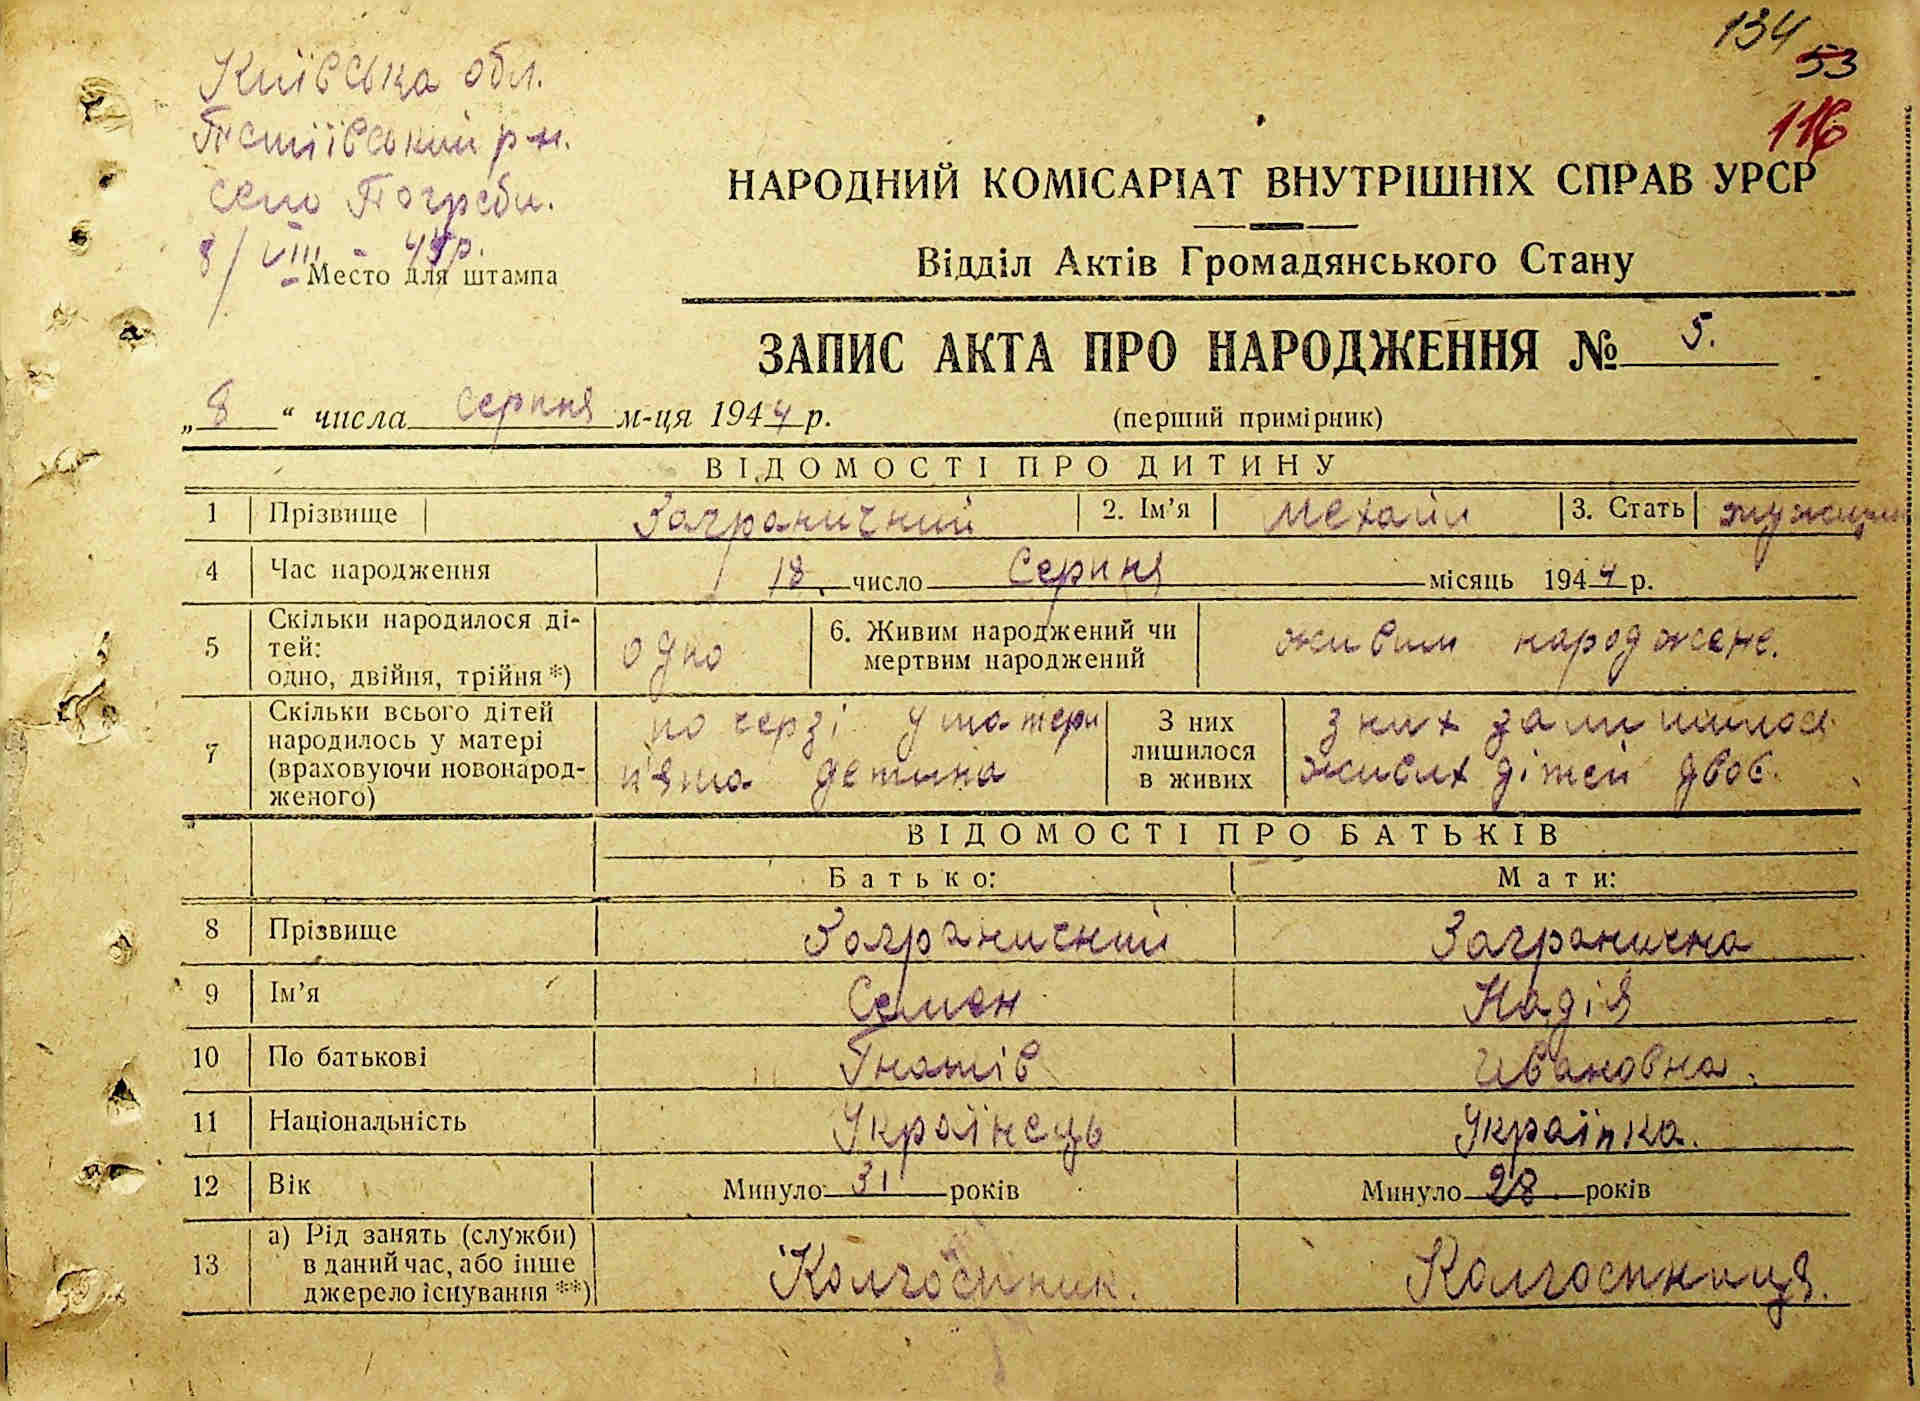 134
53
116
Київська обл.
Тетіївський р-н.
село Погреби.
8/VIII - 44р.
Место для штампа
НАРОДНИЙ КОМІСАРІАТ ВНУТРІШНІХ СПРАВ УРСР
Відділ Актів Громадянського Стану
ЗАПИС АКТА ПРО НАРОДЖЕННЯ № 5.
„8“ числа серпня м-ця 1944 р. (перший примірник)
ВІДОМОСТІ ПРО ДИТИНУ
1 Прізвище Заграничний 2. Ім'я Механйл 3. Стать
4 Час народження 18. число Серпня місяць 1944 р.
5 Скільки народилося ді-
тей:
одно, двійня, трійня *) одно 6. Живим народжений чи
мертвим народжений живим народжене.
7 Скільки всього дітей
народилось у матері
(враховуючи новонарод-
женого) по черзі у матери
п'ята детина З них
лишилося
в живих з них залишилося
живих дітей двоє.
ВІДОМОСТІ ПРО БАТЬКІВ
Батько: Мати:
8 Прізвище Заграничний Загранична
9 Ім'я Семен Надія
10 По батькові Гнатів Ивановна.
11 Національність Українець Українка.
12 Вік Минуло 31 років Минуло 28. років
13 а) Рід занять (служби)
в даний час, або інше
джерело існування **) Колгоспник. Колгоспниця.